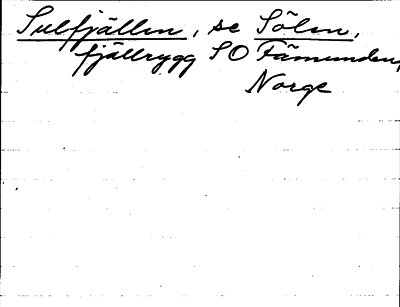 Sulfjällen, se Sölen,
fjällrygg SO Fämunden,
Norge